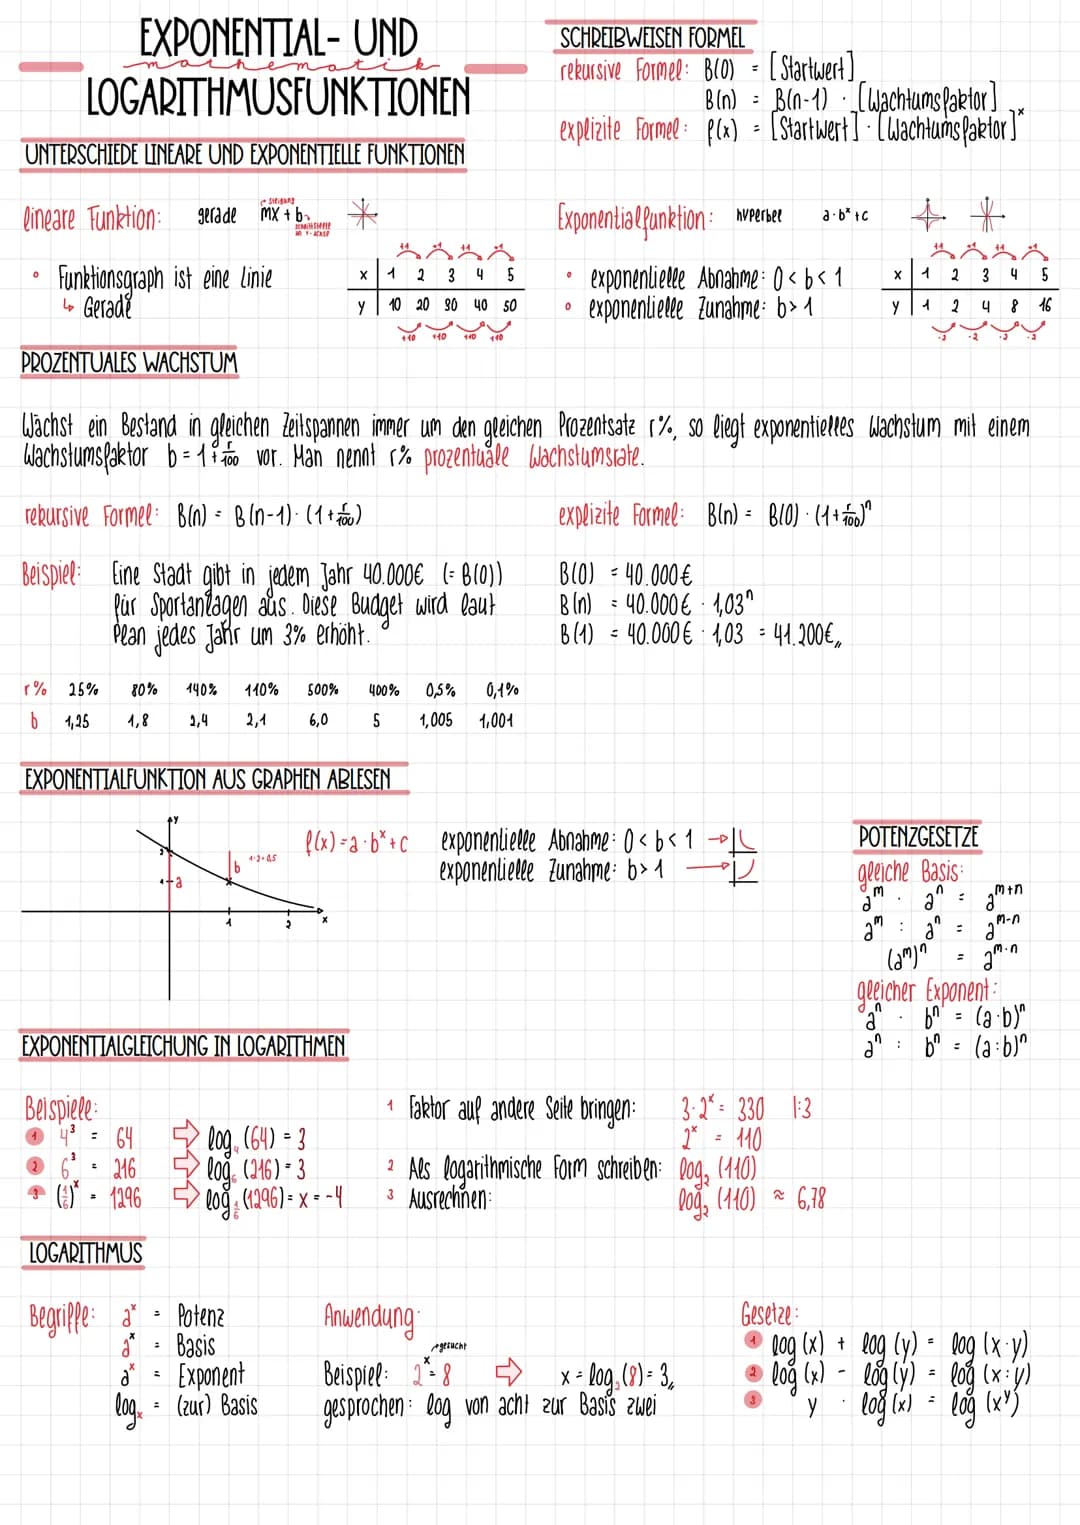 EXPONENTIAL- UND
mathematik
LOGARITHMUSFUNKTIONEN
UNTERSCHIEDE LINEARE UND EXPONENTIELLE FUNKTIONEN
SCHREIBWEISEN FORMEL
rekursive Formel: B(0) = [Startwert]
B(n) = B(n-1) · [Wachtumsfaktor]
explizite Formel: f(x) = [Startwert] · [Wachtumsfaktor]ˣ
lineare Funktion: gerade mx + b
Steigung
Schnittstelle an Y-Achse
• Funktionsgraph ist eine Linie
↳ Gerade
+1 +1 +1 +1
x | 1 2 3 4 5
y | 10 20 30 40 50
+10 +10 +10 +10
Exponentialfunktion: hyperbel a·bˣ+c
• exponentielle Abnahme: 0 < b < 1
• exponentielle Zunahme: b > 1
+1 +1 +1 +1
x | 1 2 3 4 5
y | 1 2 4 8 16
·2 ·2 ·2 ·2
PROZENTUALES WACHSTUM
Wächst ein Bestand in gleichen Zeitspannen immer um den gleichen Prozentsatz r%, so liegt exponentielles Wachstum mit einem
Wachstumsfaktor b = 1 + r/100 vor. Man nennt r% prozentuale Wachstumsrate.
rekursive Formel: B(n) = B(n-1) · (1 + r/100)
explizite Formel: B(n) = B(0) · (1 + r/100)ⁿ
Beispiel: Eine Stadt gibt in jedem Jahr 40.000€ (= B(0))
für Sportanlagen aus. Diese Budget wird laut
Plan jedes Jahr um 3% erhöht.
B(0) = 40.000€
B(n) = 40.000€ · 1,03ⁿ
B(1) = 40.000€ · 1,03 = 41.200€
r% 25% 80% 140% 110% 500% 400% 0,5% 0,1%
b 1,25 1,8 2,4 2,1 6,0 5 1,005 1,001
EXPONENTIALFUNKTION AUS GRAPHEN ABLESEN
y
2
a
b
1:2=0,5
1
2
x
f(x) = a·bˣ+c
exponentielle Abnahme: 0 < b < 1 →
exponentielle Zunahme: b > 1 →
POTENZGESETZE
gleiche Basis:
aᵐ · aⁿ = aᵐ⁺ⁿ
aᵐ : aⁿ = aᵐ⁻ⁿ
(aᵐ)ⁿ = aᵐ·ⁿ
gleicher Exponent:
aⁿ · bⁿ = (a·b)ⁿ
aⁿ : bⁿ = (a:b)ⁿ
EXPONENTIALGLEICHUNG IN LOGARITHMEN
Beispiele:
1 4³ = 64 ⇨ log₄ (64) = 3
2 6³ = 216 ⇨ log₆ (216) = 3
3 (1/6)ˣ = 1296 ⇨ log_1/6 (1296) = x = -4
1 Faktor auf andere Seite bringen: 3·2ˣ = 330 |:3
2ˣ = 110
2 Als logarithmische Form schreiben: log₂ (110)
3 Ausrechnen: log₂ (110) ≈ 6,78
LOGARITHMUS
Begriffe: aˣ = Potenz
aˣ = Basis
aˣ = Exponent
logₓ = (zur) Basis
Anwendung:
gesucht
Beispiel: 2ˣ = 8 ⇨ x = log₂ (8) = 3
gesprochen: log von acht zur Basis zwei
Gesetze:
1 log (x) + log (y) = log (x·y)
2 log (x) - log (y) = log (x:y)
3 y · log (x) = log (xʸ)